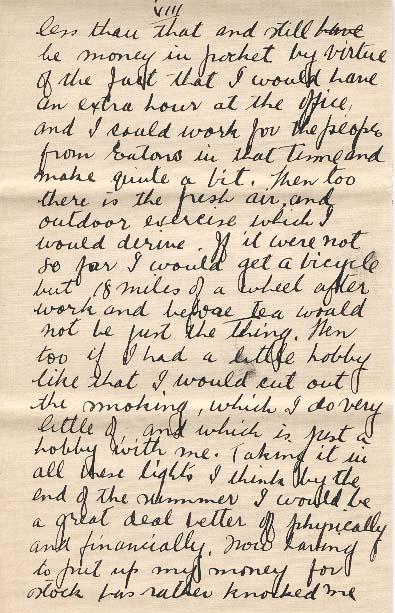 VIII
less than that and still have
be money in pocket by virtue
of the fact that I would have
an extra hour at the office,
and I could work for the people
from Eatons in that time and
make quite a bit. Then too
there is the fresh air and
outdoor exercise which I
would derive. If it were not
so far I would get a bicycle
but 18 miles of a wheel after
work and before tea would
not be just the thing. Then
too if I had a little hobby
like that I would cut out
the smoking, which I do very
little of and which is just a
hobby with me. Taking it in
all these lights I think by the
end of the summer I would be
a great deal better of physically
and financially. Now having
to put up my money for
stock has rather knocked me